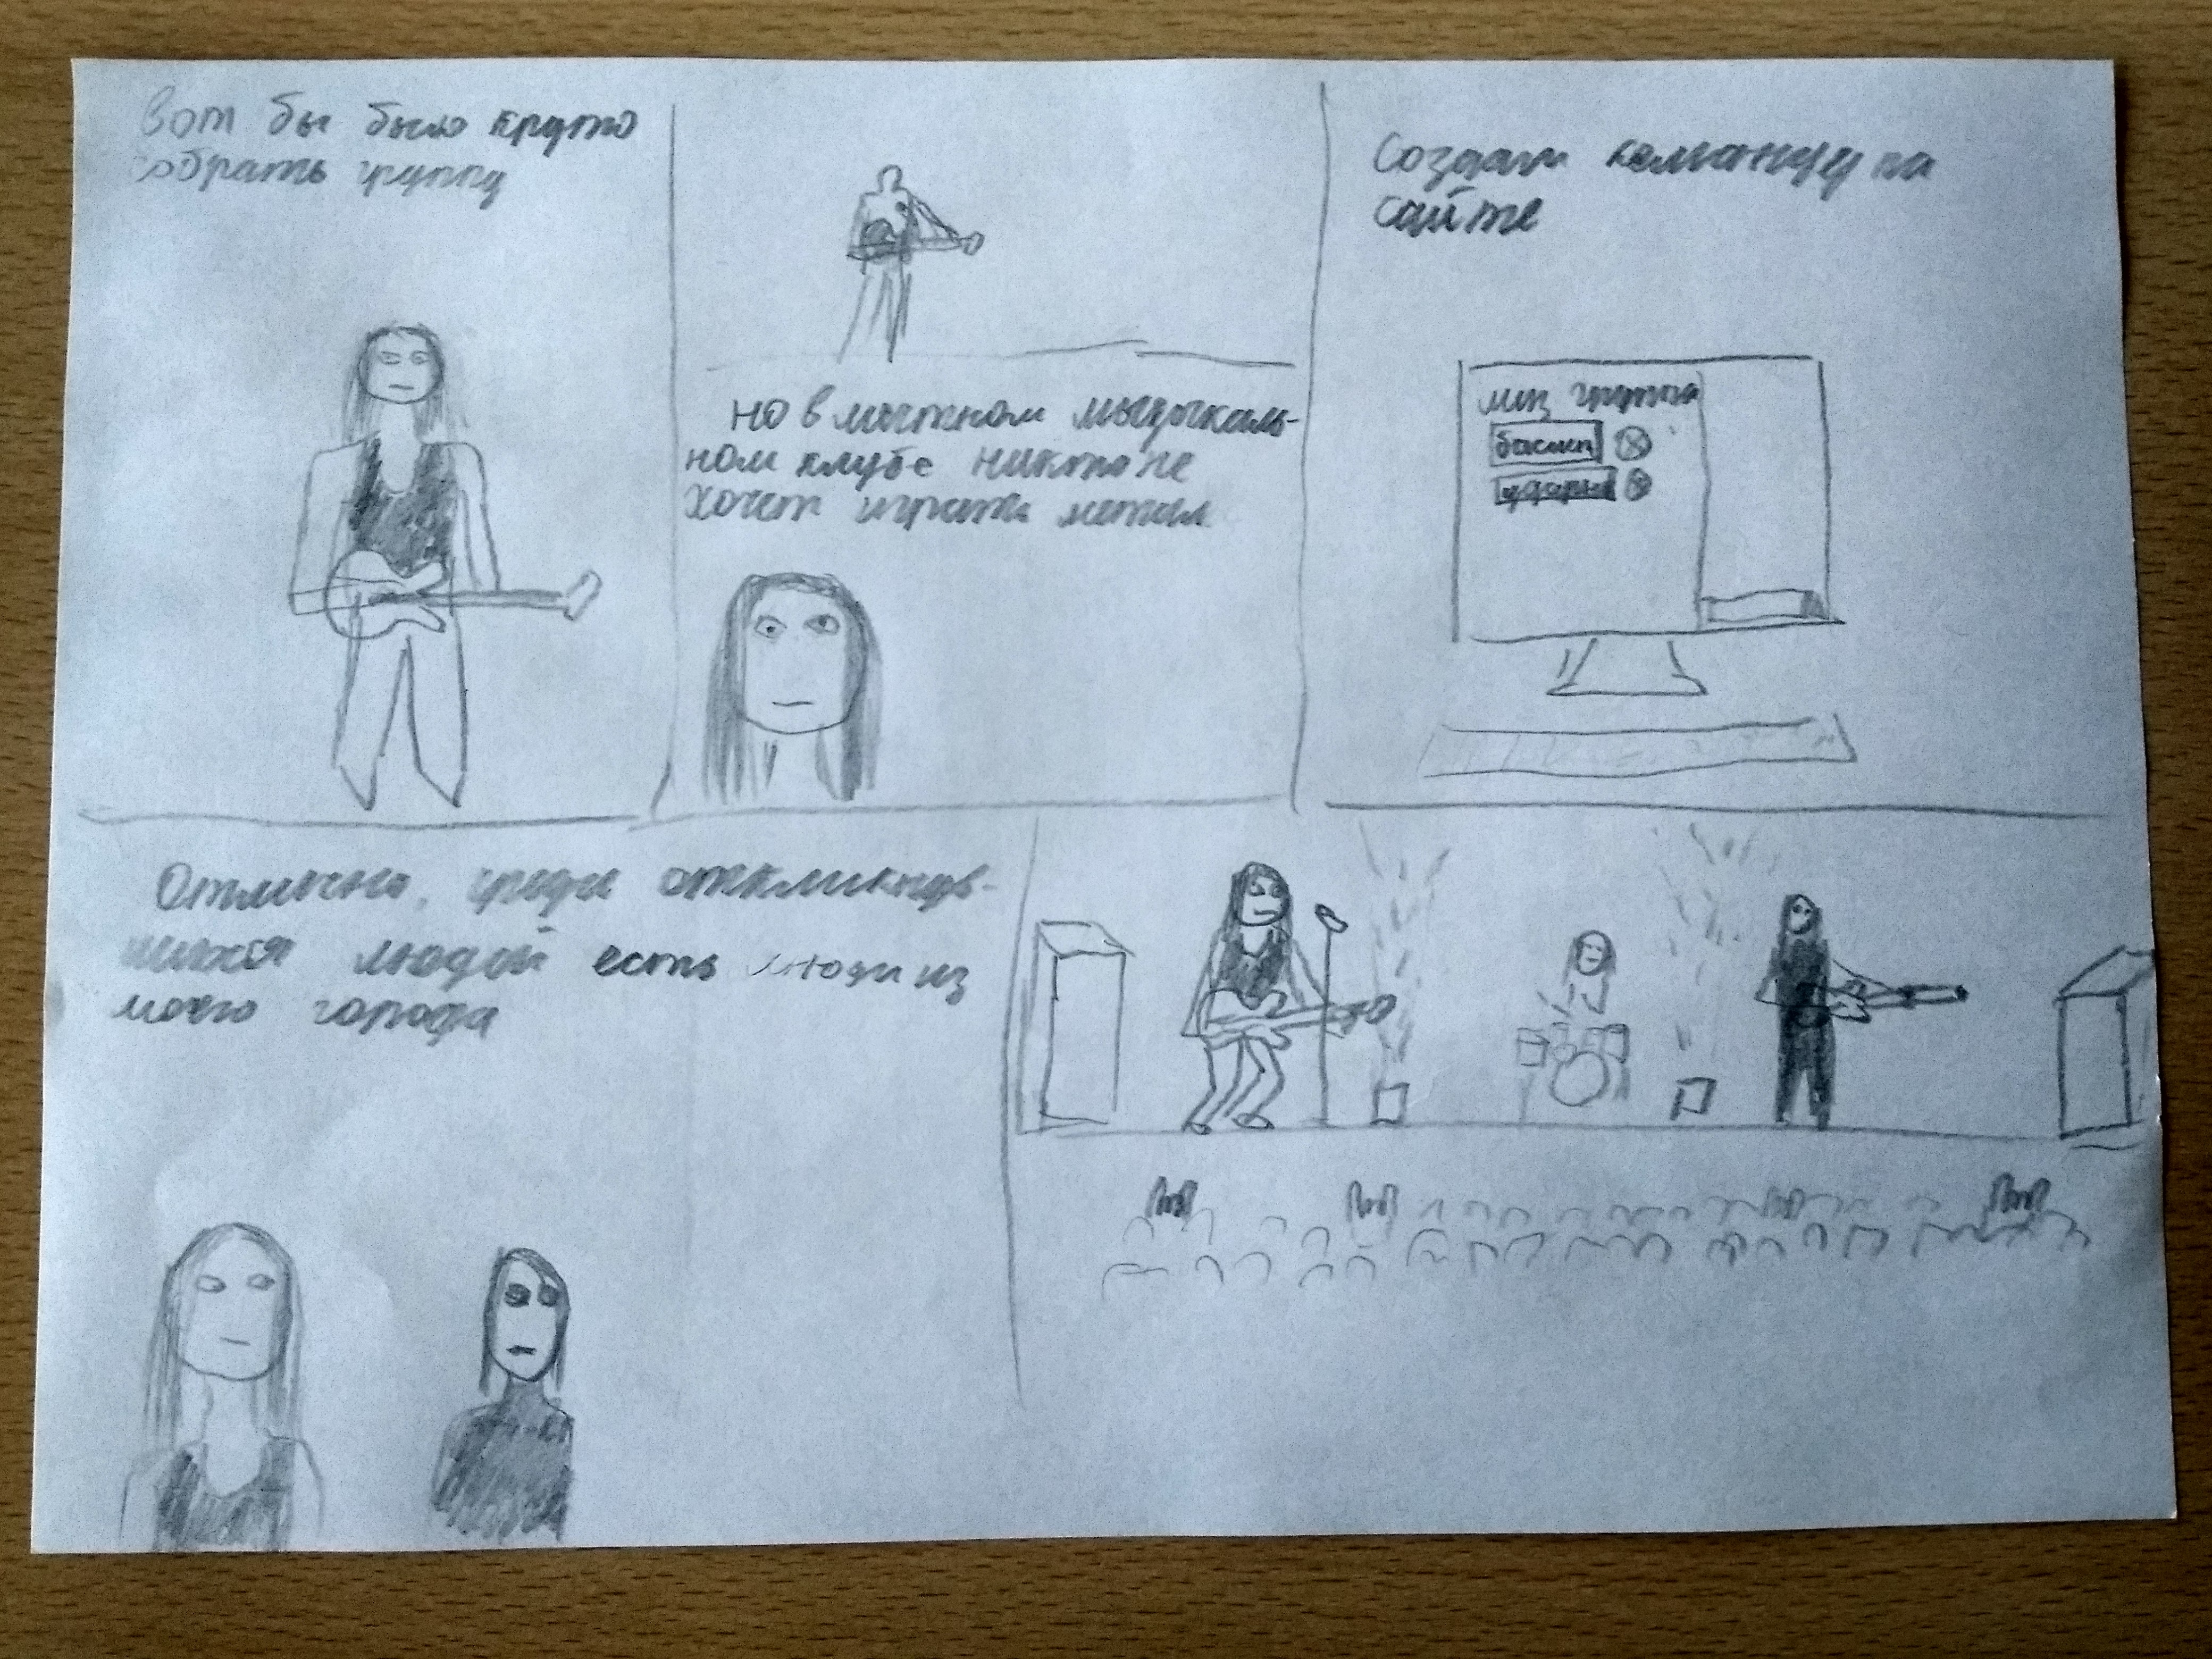 Вот бы было круто
собрать группу
но в местном музыкаль-
ном клубе никто не
хочет играть метал
Создам команду на
сайте
муз группа
басист
ударн
Отлично, среди откликнув-
шихся людей есть люди из
моего города